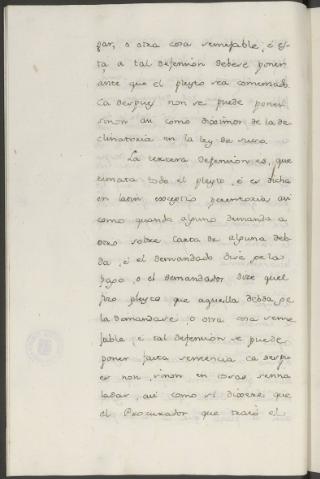 par, o otra cosa semejable, é es-
ta, a tal defension debese poner
ante que el pleyto sea comenzado
Ca despues non se puede poner,
sinon asi como diximos de la de
clinatoria en la ley de suso.
La tercera defension es, que
remata todo el pleyto, é es dicha
en latin exceptio peremtoria asi
como quando alguno demanda a
otro sobre Carta de alguna deb-
da, é el demandado dice que la
pago, o el demandador dice quel
fizo pleyto que aquella debda, que
la demandase o otra cosa seme
jable é tal defension se puede
poner fasta sentencia ca despu
es non, sinon en cosas senna
ladas, asi como si dixiere que
el Procurador que traxo el